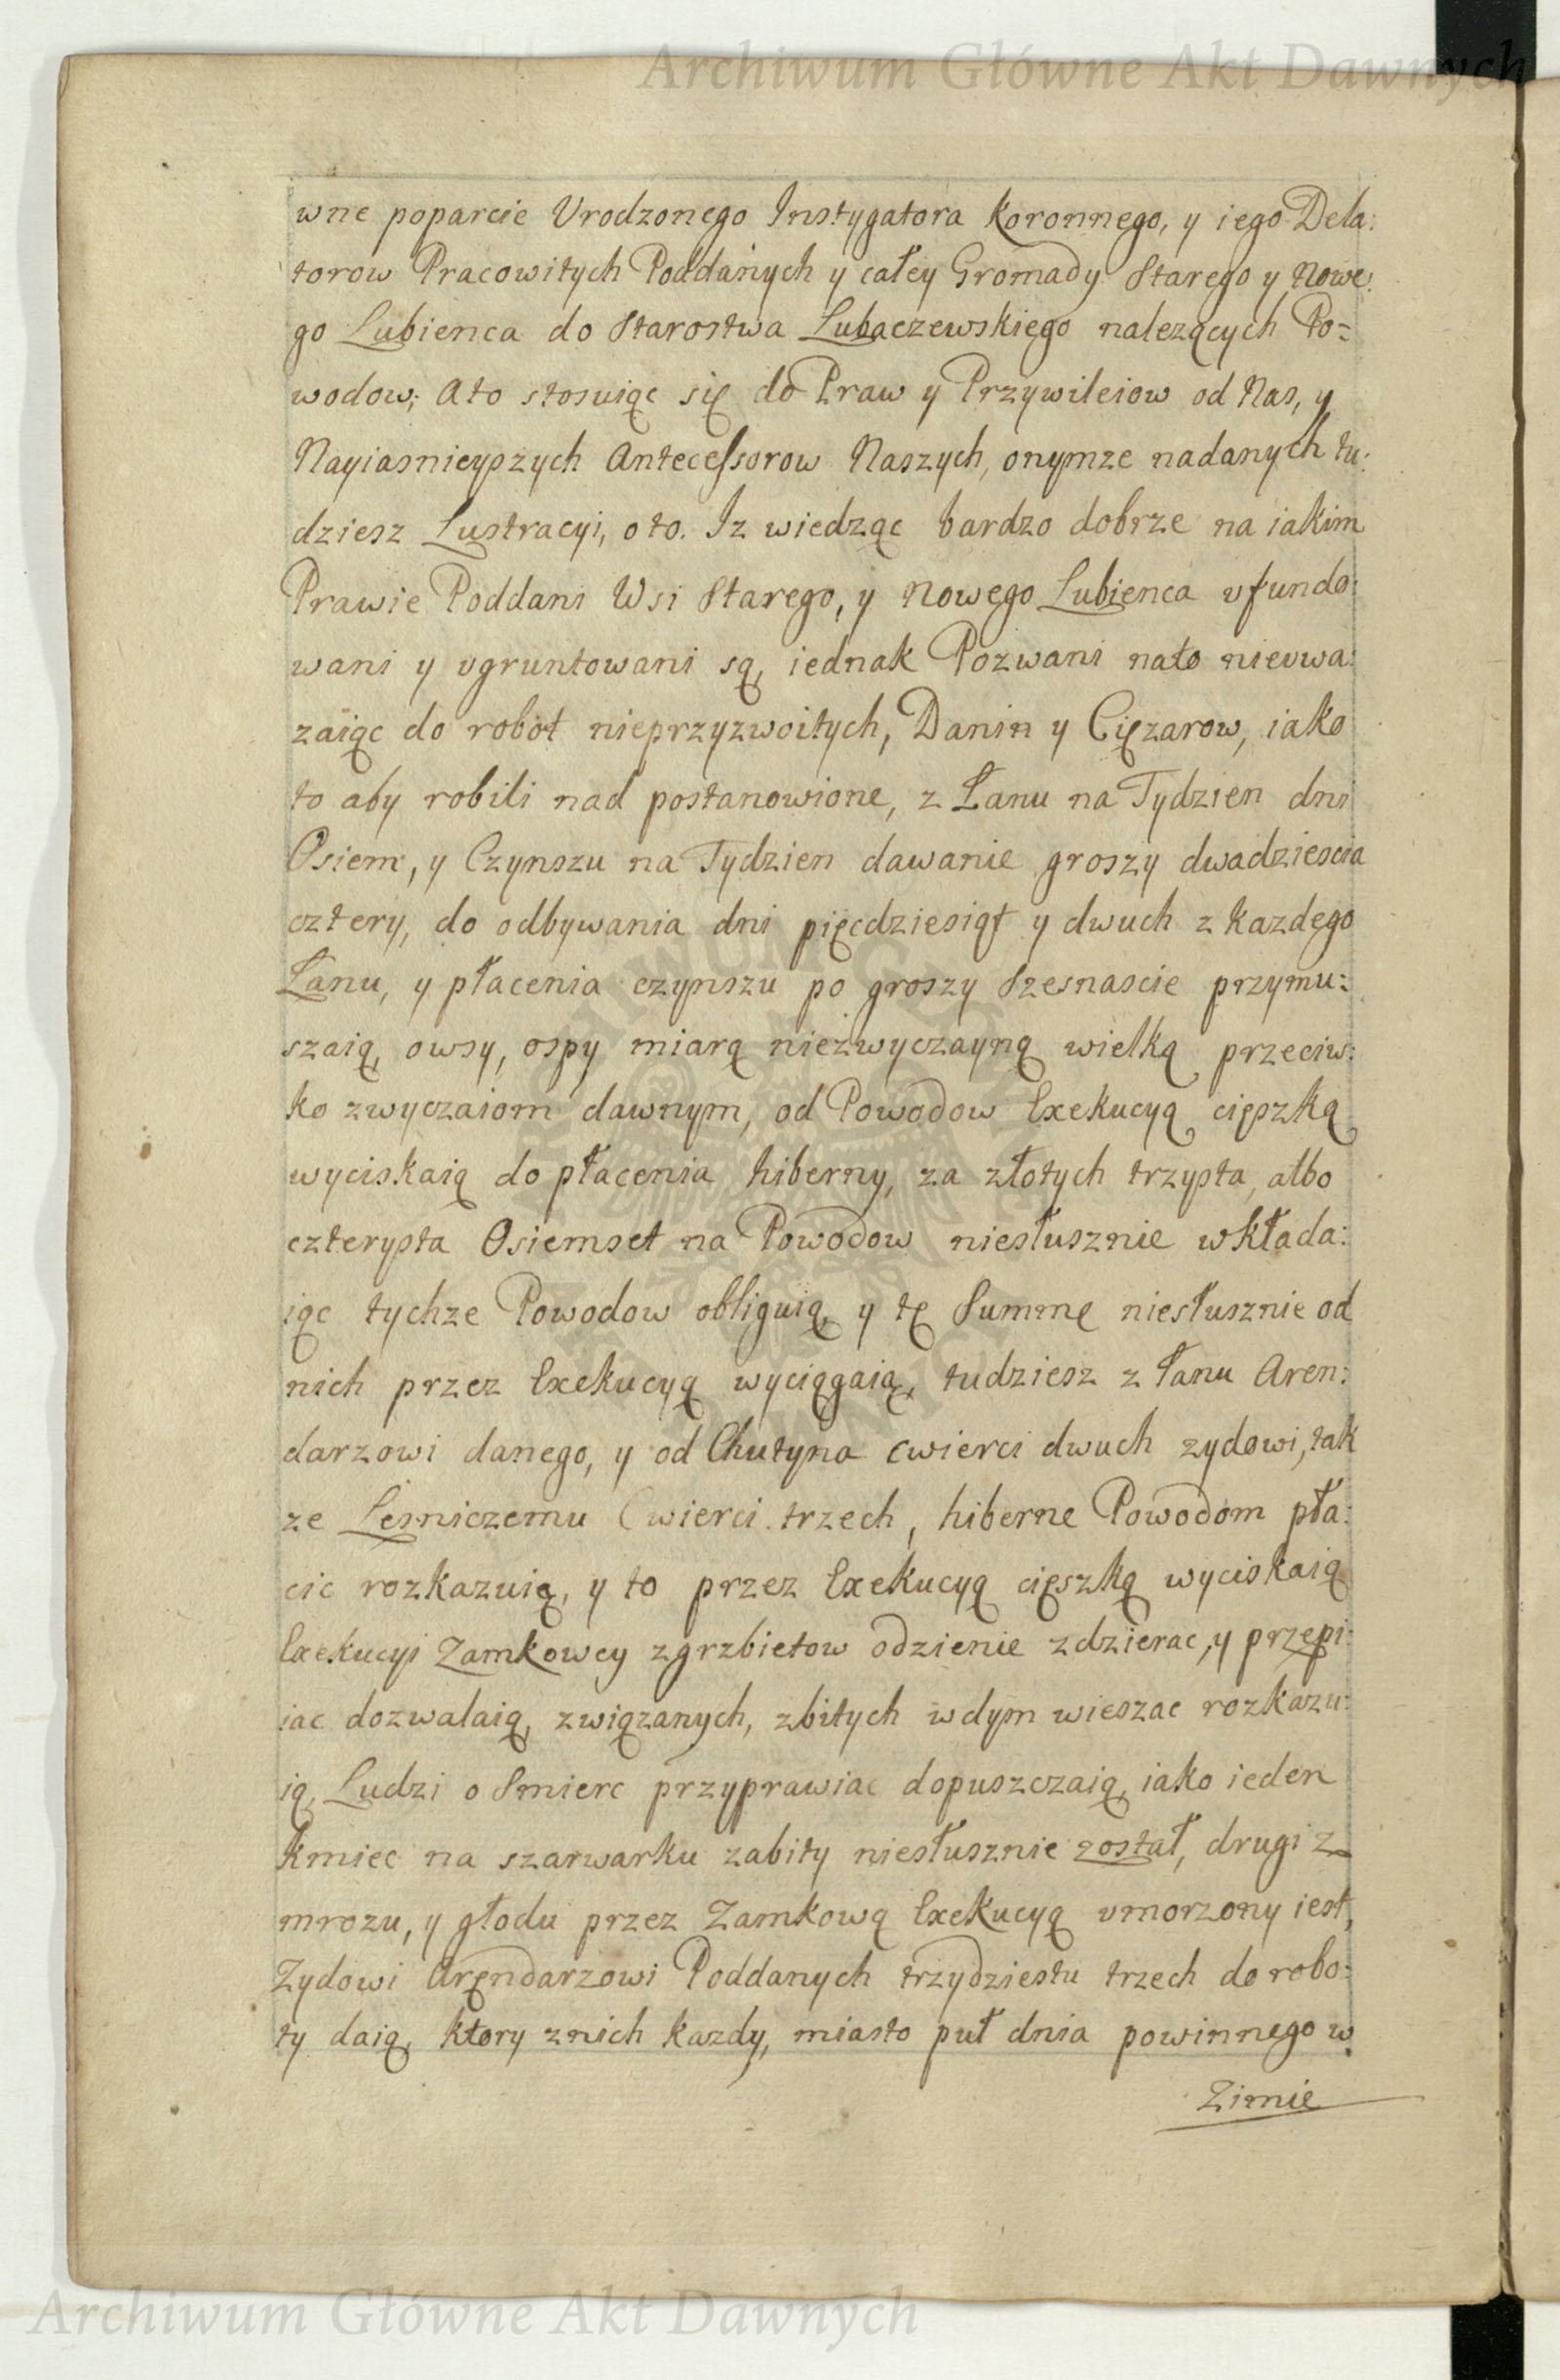 Archiwum Główne Akt Dawnych
wne poparcie Vrodzonego Instygatora Koronnego, y iego Dela:
torow Pracowitych Poddanych y całey Gromady Starego y Nowe:
go Lubienca do Starostwa Lubaczewskiego nalezących Po=
wodow; A to stosuiąc się do Praw y Przywileiow od Nas, y
Nayiasnieyszych Antecessorow Naszych, onymze nadanych tu:
dziesz Lustracyi, o to. Iz wiedząc bardzo dobrze na iakim
Prawie Poddani Wsi Starego, y Nowego Lubienca vfundo:
wani y vgruntowani są, iednak Pozwani nato nievwa:
zaiąc do robot nieprzyzwoitych, Danin y Cięzarow, iako
to aby robili nad postanowione, z Łanu na Tydzien dni
Osiem, y Czynszu na Tydzien dawanie groszy dwadziescia
cztery, do odbywania dni pięcdziesiąt y dwuch z kazdego
Łanu, y płacenia czynszu po groszy Szesnascie przymu:
szaią, owsy, ospy miarą niezwyczayną wielką przeciw:
ko zwyczaiom dawnym, od Powodow Exekucyą cięszką
wyciskaią do płacenia hiberny, za złotych trzysta, albo
czterysta Osiemset na Powodow niesłusznie wkłada:
iąc tychze Powodow obliguią, y tę Summę niesłusznie od
nich przez Exekucyą wyciągaią, tudziesz z łanu Aren:
darzowi danego, y od Chutyna cwierci dwuch zydowi, tak
ze Lesniczemu Cwierci trzech, hiberne Powodom pła:
cic rozkazuią, y to przez Exekucyą cięszką wyciskaią
Exekucyi Zamkowey zgrzbietow odzienie zdzierac, y przepi:
iac dozwalaią, związanych, zbitych wdym wieszac rozkazu:
ią, Ludzi o Smierc przyprawiac dopuszczaią, iako ieden
kmiec na szarwarku zabity niesłusznie został, drugi z
mrozu, y głodu przez Zamkową Exekucyą vmorzony iest,
Zydowi Arendarzowi Poddanych trzydziestu trzech do robo:
ty daią, ktory znich kazdy, miasto puł dnia powinnego w
Zimie
Archiwum Główne Akt Dawnych